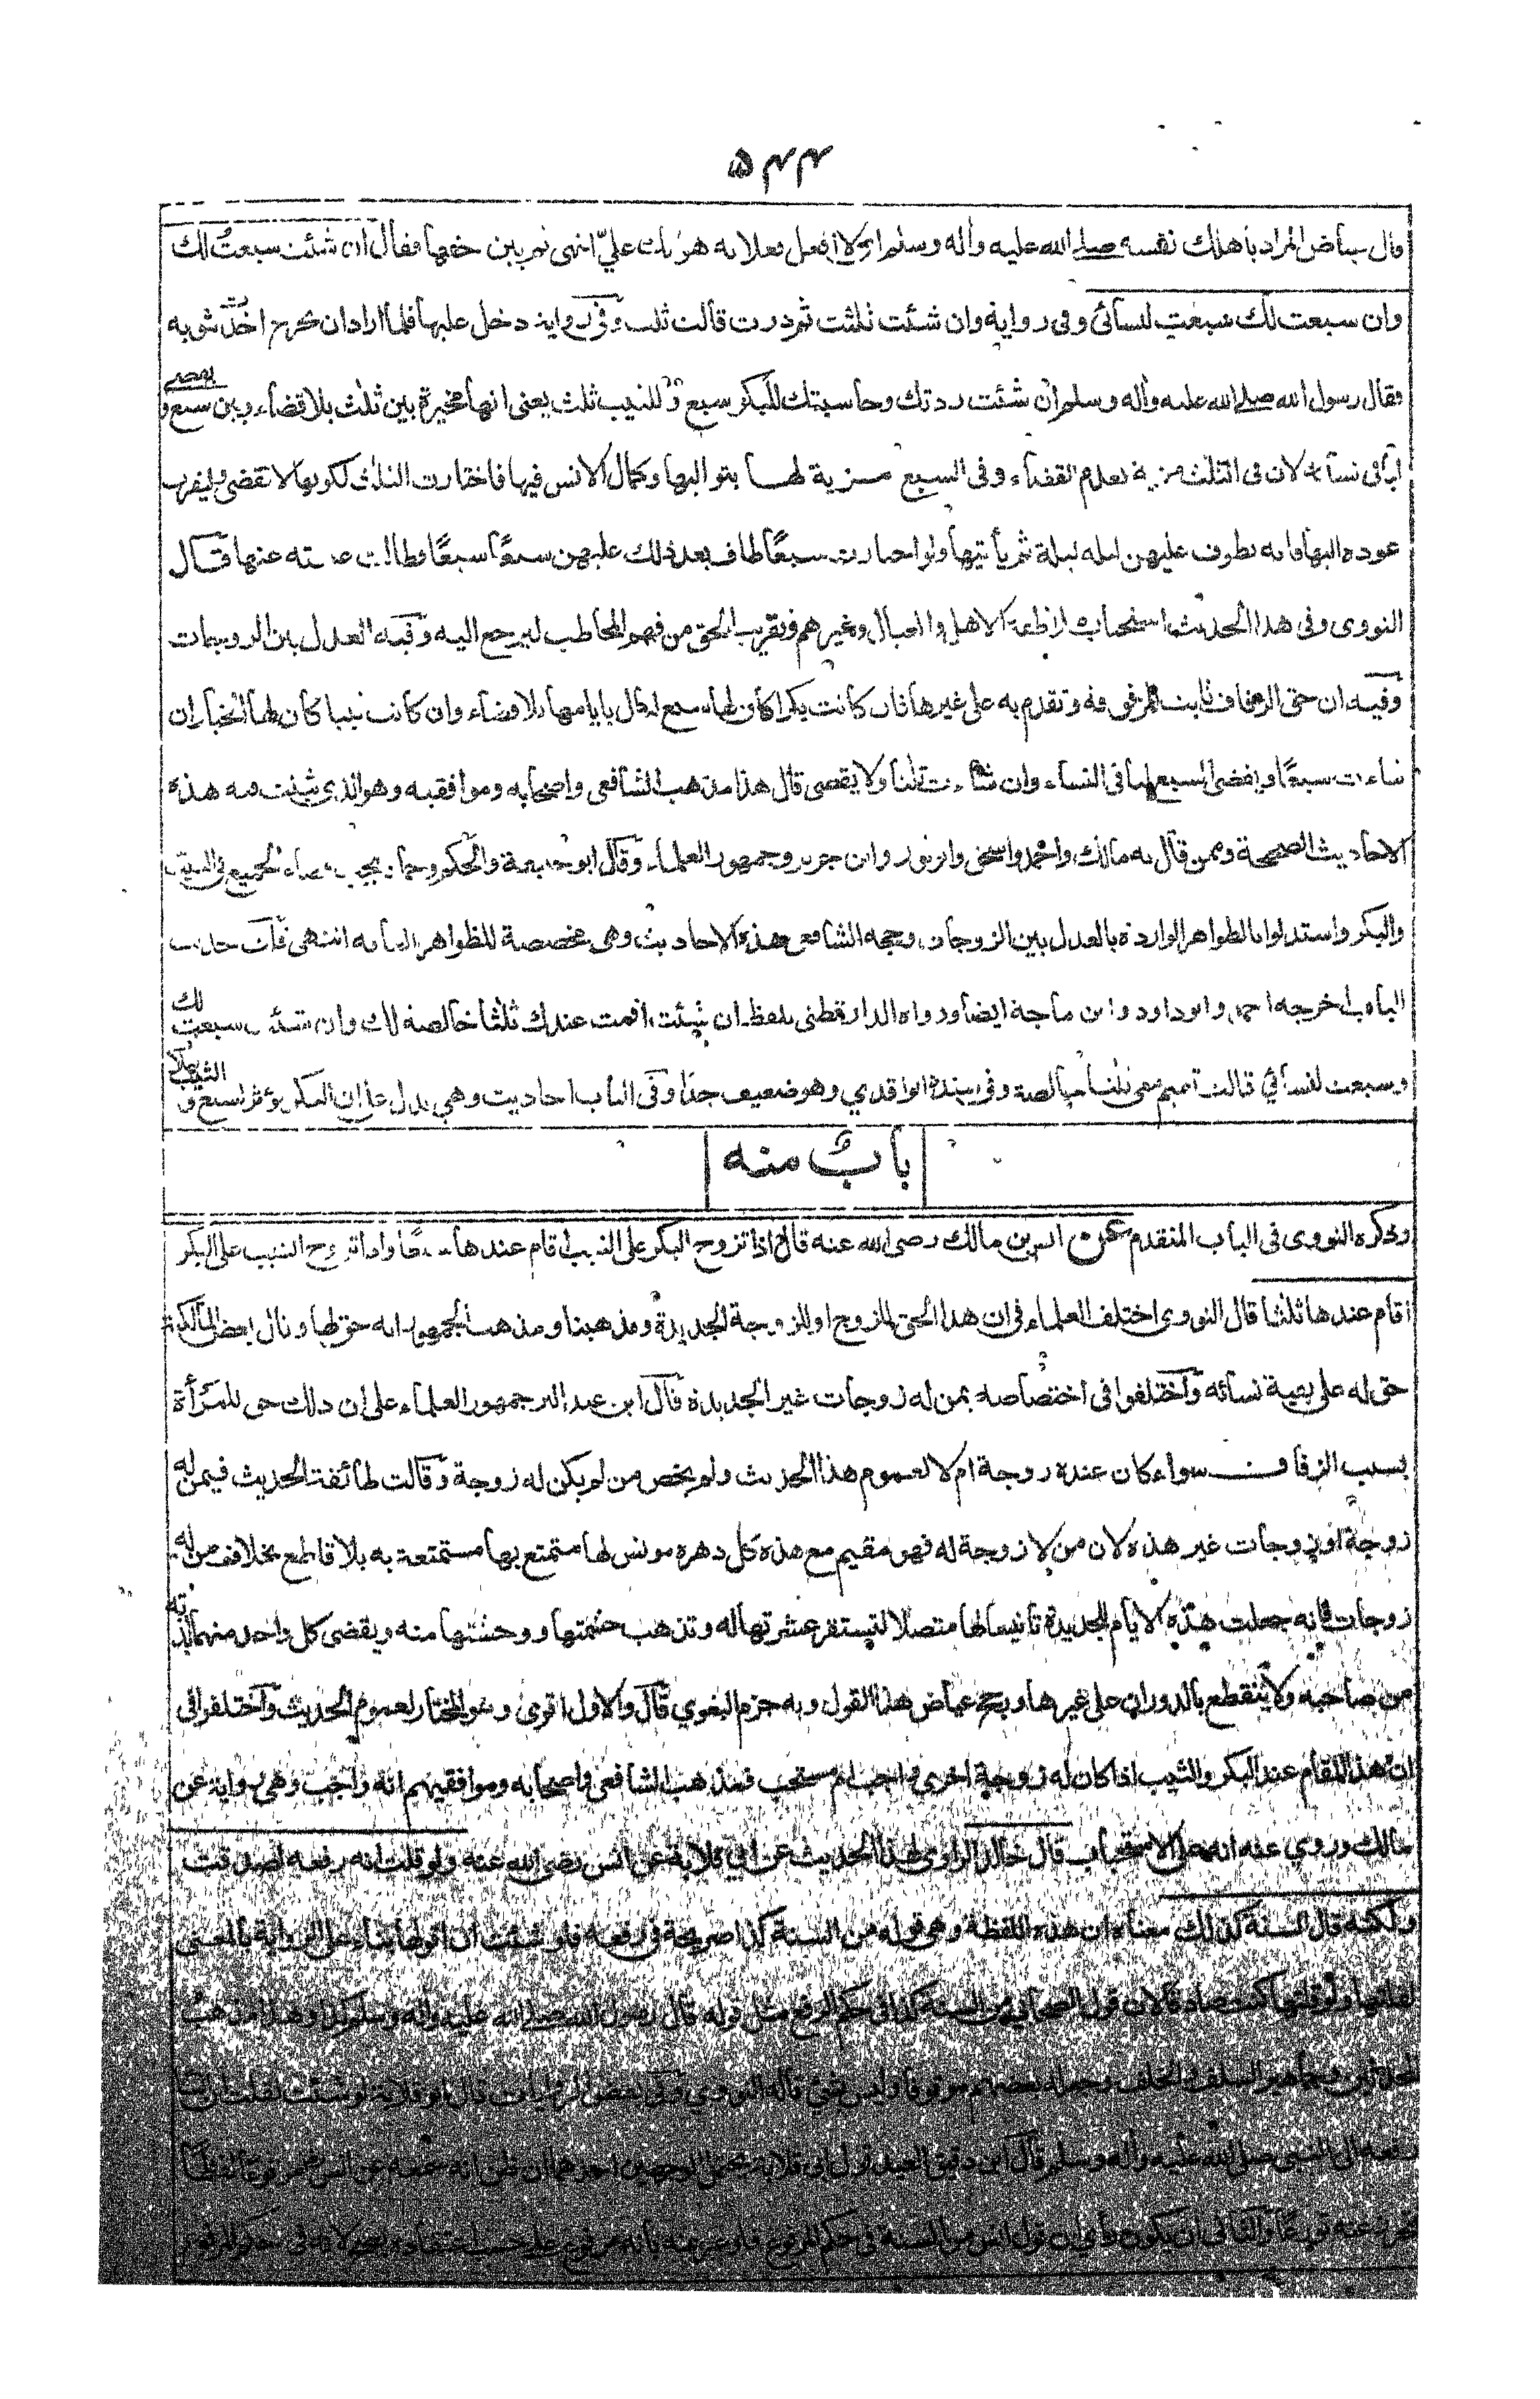 ۵۴۴
قال عياض المراد باهلك نفسه صلى الله عليه واله وسلم اى لا افعل فعلا به هوانك علىّ انتهى ثم بين حقها فقال ان شئت سبعتُ لك
وان سبعت لك سبعت لنسائى وفى رواية وان شئت ثلثت ثم درت قالت ثلث وفى رواية دخل عليها فلما اراد ان يخرج اخذت بثوبه
فقال رسول الله صلى الله عليه واله وسلم ان شئت زدتك وحاسبتك للبكر سبع وللثيب ثلث يعنى انها مخيرة بين ثلث بلا قضاء وبين سبع و يقضى
لباقى نسائه لان فى الثلث مزية بعدم القضاء وفى السبع مزية لها بتواليها وكمال الانس فيها فاختارت الثلث لكونها لا تقضى وليقرب
عوده اليها فانه يطوف عليهن ليلة ليلة ثم يأتيها ولو اختارت سبعًا طاف بعد ذلك عليهن سبعًا سبعًا وطالت غيبته عنها قال
النووى وفى هذا الحديث استحباب ملاطفة الاهل والعيال وغيرهم وتقريب الحق من فهم المخاطب ليرجع اليه وفيه العدل بين الزوجات
وفيه ان حق الزفاف ثابت للمزفوفة وتقدم به على غيرها فان كانت بكرا كان لها سبع ليال بايامها بلا قضاء وان كانت ثيبا كان لها الخيار ان
شاءت سبعًا ويقضى السبع لباقى النساء وان شاءت ثلثا ولا يقضى قال هذا مذهب الشافعى واصحابه وموافقيه وهو الذى ثبتت فيه هذه
الاحاديث الصحيحة وممن قال به مالك واحمد واسحق وابو ثور وابن جرير وجمهور العلماء وقال ابو حنيفة والحكم وحماد يجب قضاء الجميع فى الثيب
والبكر واستدلوا بالظواهر الواردة بالعدل بين الزوجات وحجة الشافعى هذه الاحاديث وهى مخصصة للظواهر العامة انتهى قلت حديث
الباب اخرجه احمد وابو داود وابن ماجة ايضا ورواه الدارقطنى بلفظ ان شئت اقمت عندك ثلثا خالصة لك وان شئت سبعت لك
وسبعت لنسائى قالت تقيم معى ثلثا خالصة وفى سنده الواقدي وهو ضعيف جدا وفى الباب احاديث وهى تدل على ان البكر تؤثر بسبع و الثيب بثلاث
باب منه
وذكره النووى فى الباب المتقدم عن انس بن مالك رضى الله عنه قال اذا تزوج البكر على الثيب اقام عندها سبعًا واذا تزوج الثيب على البكر
اقام عندها ثلثا قال النووى اختلف العلماء فى ان هذا الحق للزوج او للزوجة الجديدة ومذهبنا ومذهب الجمهور انه حق لها وقال بعض المالكية
حق له على بقية نسائه واختلفوا فى اختصاصه بمن له زوجات غير الجديدة قال ابن عبد البر جمهور العلماء على ان ذلك حق للمرأة
بسبب الزفاف سواء كان عنده زوجة ام لا لعموم هذا الحديث ولم يخص من لم يكن له زوجة وقالت طائفة الحديث فيمن له
زوجة او زوجات غير هذه لان من لا زوجة له فهو مقيم مع هذه كل دهره مونس لها متمتع بها مستمتعة به بلا قاطع بخلاف من له
زوجات فانه جعلت هذه الايام للجديدة تانيسا لها متصلا لتستقر عشرتها له وتذهب حشمتها ووحشتها منه ويقضى كل واحد منهما لذته
من صاحبه ولا ينقطع بالدوران على غيرها ورجح عياض هذا القول وبه جزم البغوي قال والاول اقوى وهو المختار لعموم الحديث واختلفوا فى
ان هذا المقام عند البكر والثيب اذا كان له زوجة اخرى واجب ام مستحب فمذهب الشافعى واصحابه وموافقيهم انه واجب وهى رواية عن
مالك وروي عنه انه على الاستحباب قال خالد الراوى لهذا الحديث عن ابي قلابة عن انس رضى الله عنه ولو قلت انه رفعه لصدقت
ولكنه قال السنة كذلك معناه ان هذه اللفظة وهى قوله من السنة كذا صريحة فى رفعه فلو شئت ان اقولها بناء على الرواية بالمعنى
لقلتها ولو قلتها كنت صادقا لان قول الصحابى من السنة كذا فى حكم الرفع مثل قوله قال رسول الله صلى الله عليه واله وسلم كذا وهذا مذهب
المحدثين وجماهير السلف والخلف وجعله بعضهم موقوفا وليس بشئ قاله النووي وفى بعض الروايات قال ابو قلابة لو شئت لقلت ان انسا
رفعه الى النبى صلى الله عليه واله وسلم قال ابن دقيق العيد قول ابى قلابة يحتمل وجهين احدهما ان ظن انه سمعه عن انس مرفوعًا لفظا